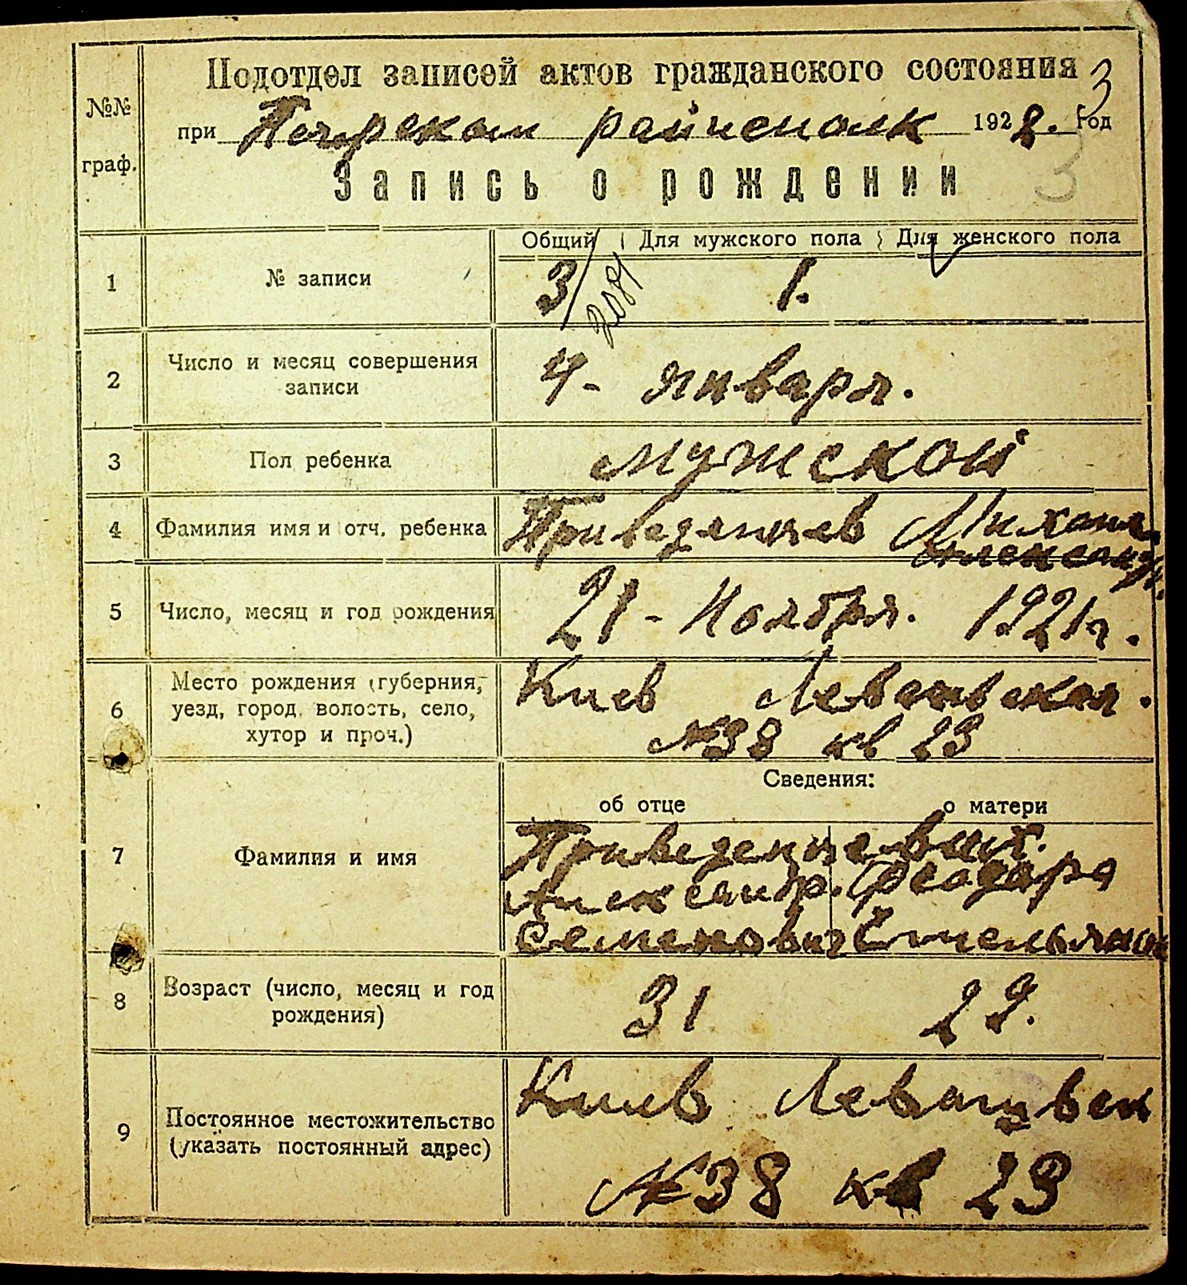 Подотдел записей актов гражданского состояния
3
№№ граф.
при Печерском райисполк 1922. год
3
Запись о рождении
Общий Для мужского пола Для женского пола
1 № записи 3/2081 1.
2 Число и месяц совершения записи
4 - января.
3 Пол ребенка мужской
4 Фамилия имя и отч. ребенка Приведенцев Михаил
Александр.
5 Число, месяц и год рождения 21 - Ноября. 1921 г.
6 Место рождения (губерния, уезд, город, волость, село, хутор и проч.)
Киев
№38 кв 23
Сведения:
об отце о матери
7 Фамилия и имя
Приведенцевых.
Александр. Феодора
Семенович
8 Возраст (число, месяц и год рождения)
31 29.
9 Постоянное местожительство (указать постоянный адрес)
Киев
№38 кв 23